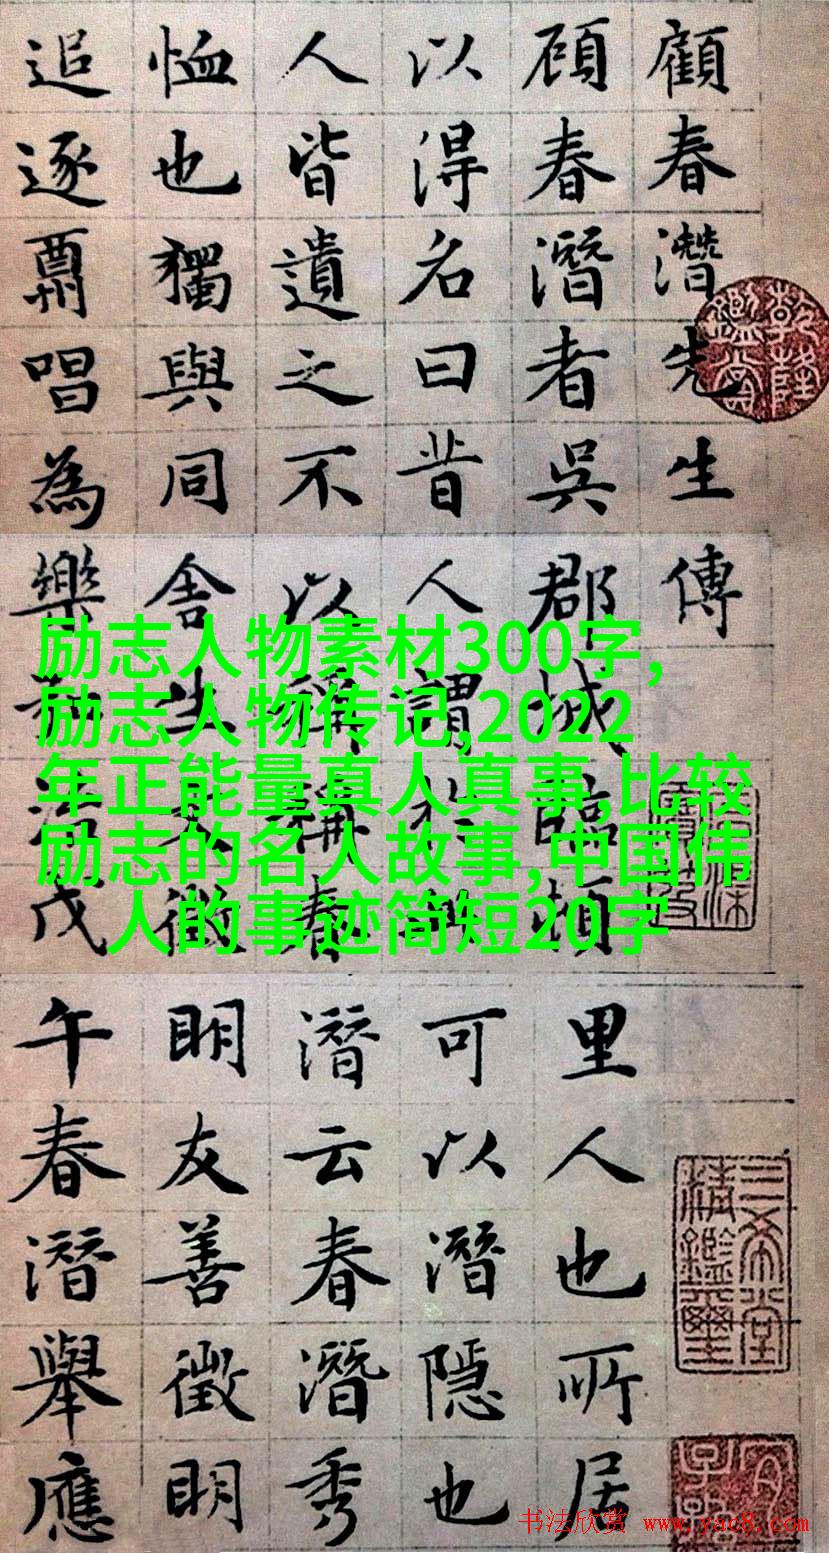 顧春潛先生傳
顾春潛者吳郡城臨頓里人也所居
以得名曰昔人謂於可以潛隱也
人皆遺之不以稱春潛云春潛秀
恤也獨與同舍生徵明友善徵明
追逐唱為樂戊午春潛舉應
励志人物素材300字,
励志人物传记,2022
年正能量真人真事,比较
励志的名人故事,中国伟
人的事迹简短20字
乾隆鑑賞
三希堂精鑑璽
书法欣赏 www.yac8.com